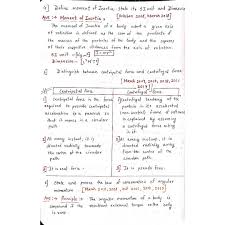 Define moment of Inertia, state its SI unit and Dimensions
Ans :- Moment of Inertia : [October 2015, March 2018]
The moment of Inertia of a body about a given axis
of rotation is defined as the sum of the products of
the masses of the particles of the body and the square
of their respective distances from the axis of rotation.
SI unit -
Dimension -
Distinguish between centripetal force and centrifugal force
Centripetal force | Centrifugal force
1) Centripetal force is the force
required to provide centripetal
acceleration to a particle so
that it moves in a
circular path
1) Centrifugal tendency of the
particle in an accelerated
frame of reference
is explained by assuming
a centrifugal force acting
on it.
2) At every instant, it is
directed radially towards
the centre of the circular
path.
2) At every instant, it is
directed radially away
from the centre of the
circular path.
3) It is real force.
3) It is pseudo force.
State and prove the law of conservation of angular
momentum
Ans :- Principle : The angular momentum of a body is
conserved if the resultant external torque on the body
is zero